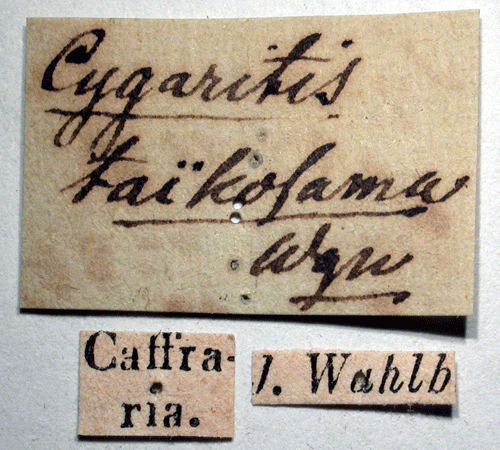 Cygaritis
taïkosama
Wgn
Caffra-
ria.
J. Wahlb